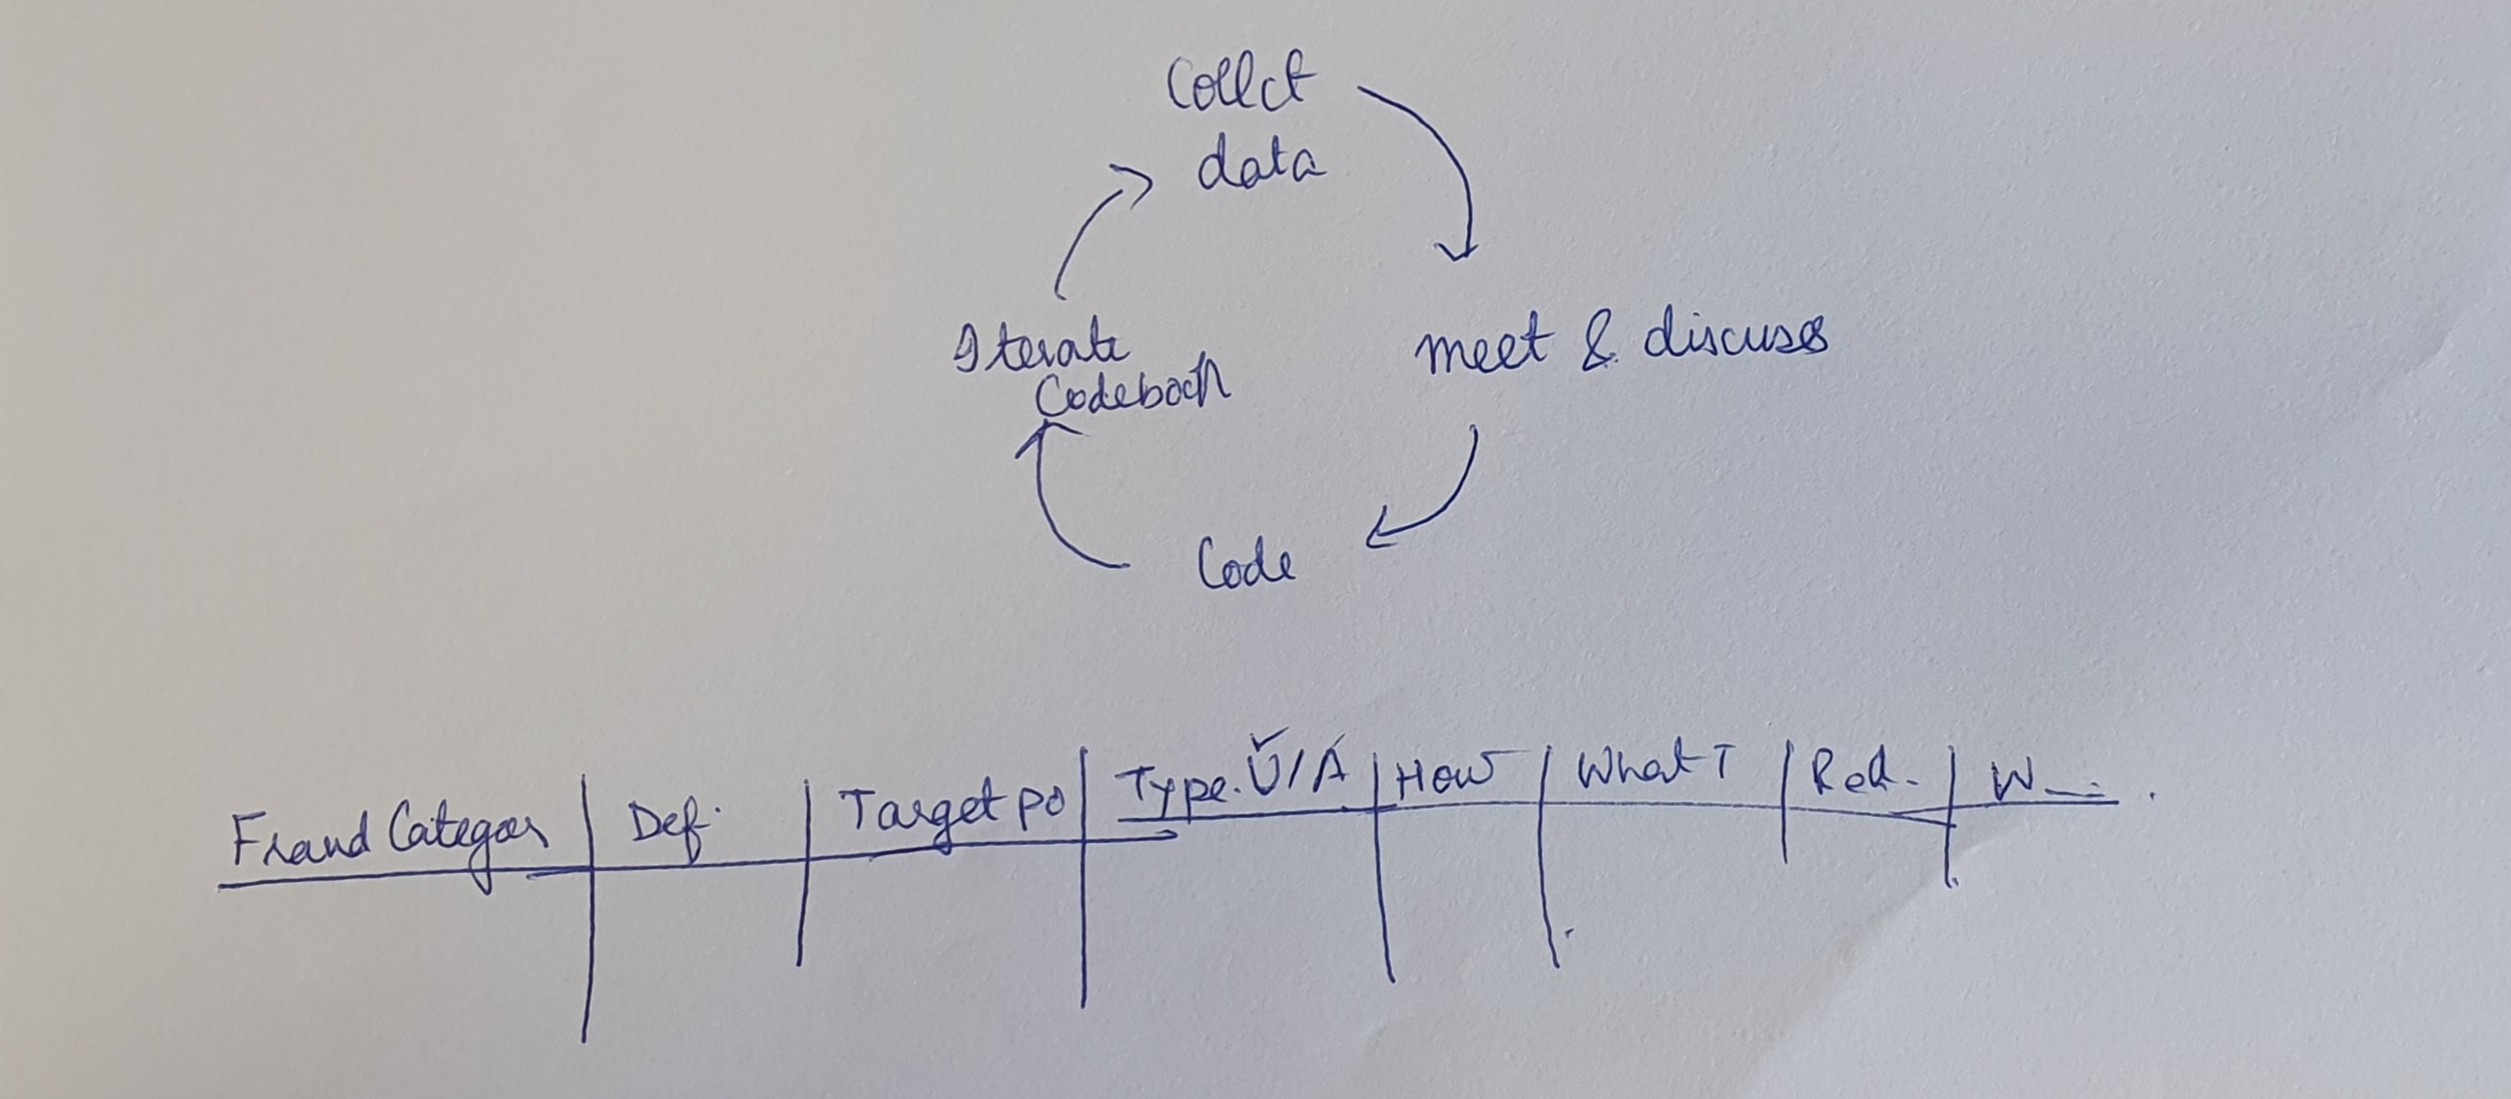 Collct
data
meet & discuss
Code
Iterate
Codebook
Fraud Categor | Def. | Target po | Type. U/A | How | What T | Red. | W